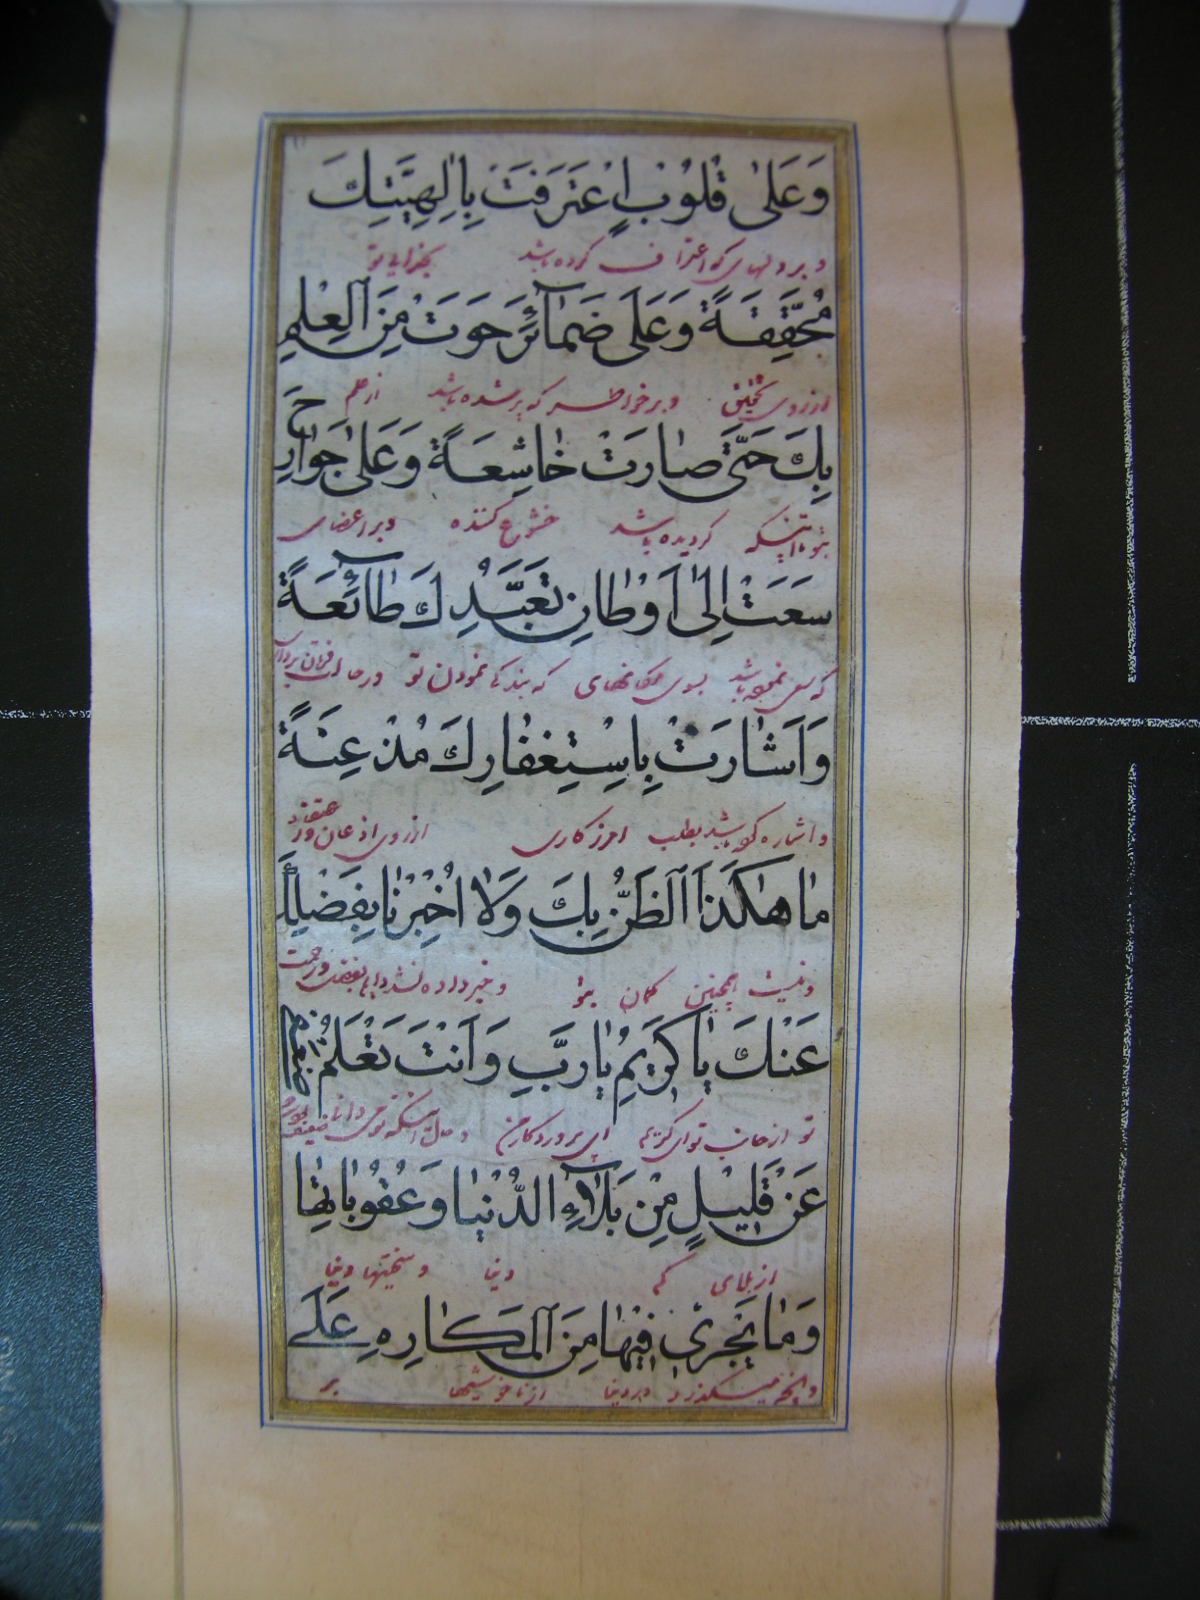 وَعَلىٰ قُلُوبٍ اعْتَرَفَتْ بِاِلٰهِيَّتِكَ
و بر دلهای که اعتراف کرده باشد بخدایی تو
مُحَقِّقَةً وَعَلىٰ ضَمآئِرَ حَوَتْ مِنَ الْعِلْمِ
از روی تحقیق و بر خواطر که پر شده باشد از علم
بِكَ حَتّىٰ صارَتْ خاشِعَةً وَعَلىٰ جَوارِحَ
بتو تا اینکه گردیده باشد خشوع کننده و بر اعضای
سَعَتْ اِلىٰ اَوْطانِ تَعَبُّدِكَ طآئِعَةً
که سعی نموده باشد بسوی مکانهای که بندگی نمودن تو در حال فرمان برداری
وَاَشارَتْ بِاسْتِغْفارِكَ مُذْعِنَةً
و اشاره کرده باشد بطلب امرزکاری از روی اذعان و
ما هٰكَذَا الظَّنُّ بِكَ وَلا اُخْبِرْنا بِفَضْلِكَ
و نیست اینچنین گمان بتو و خبر داده نشده ایم بفضل و رحمت
عَنْكَ يا كَريمُ يا رَبِّ وَاَنْتَ تَعْلَمُ ضَعْفى
تو از جانب تو ای کریم ای پروردکار من و حال آنکه تو می دانی ضعیفی
عَنْ قَليلٍ مِنْ بَلآءِ الدُّنْيا وَعُقُوباتِها
از بلای کم دنیا و سختیها دنیا
وَما يَجْرى فيها مِنَ الْمَكارِهِ عَلىٰ
و آنچه میگذرد در دنیا از ناخوشیها بر